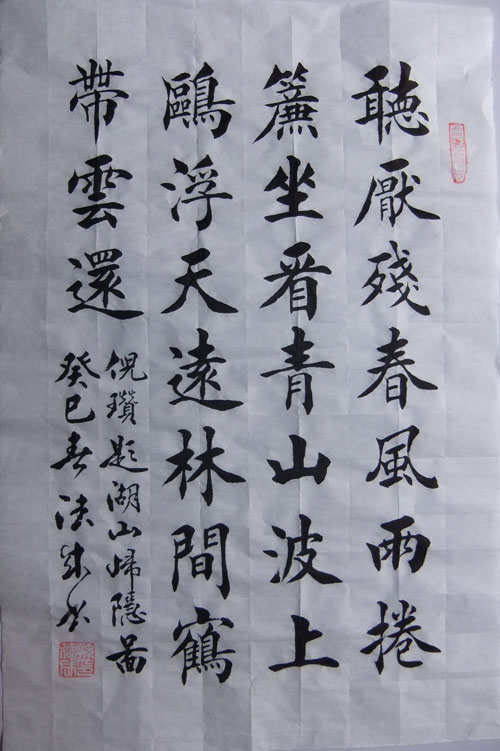 聽厭殘春風雨捲
簾坐看青山波上
鷗浮天遠林間鶴
帶雲還
倪瓚題湖山歸隱圖
癸巳春法成书